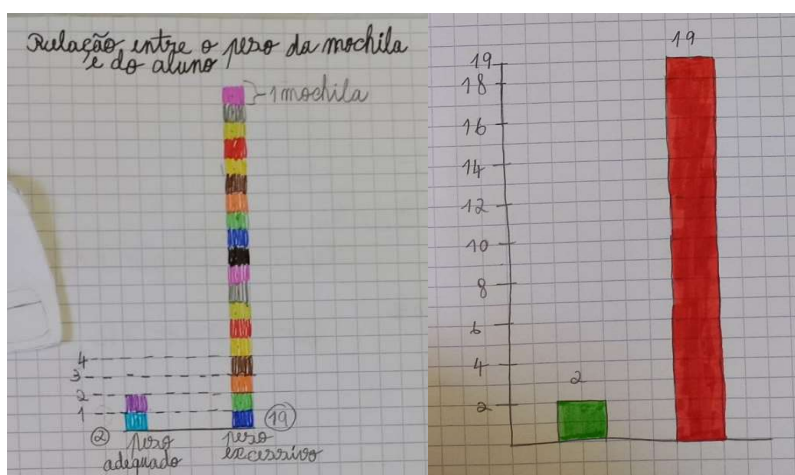 Relação entre o peso da mochila
e do aluno
1 mochila
4
3
2
1
2 peso adequado
peso excessivo 19
19
19
18
16
14
12
10
8
6
4
2
2